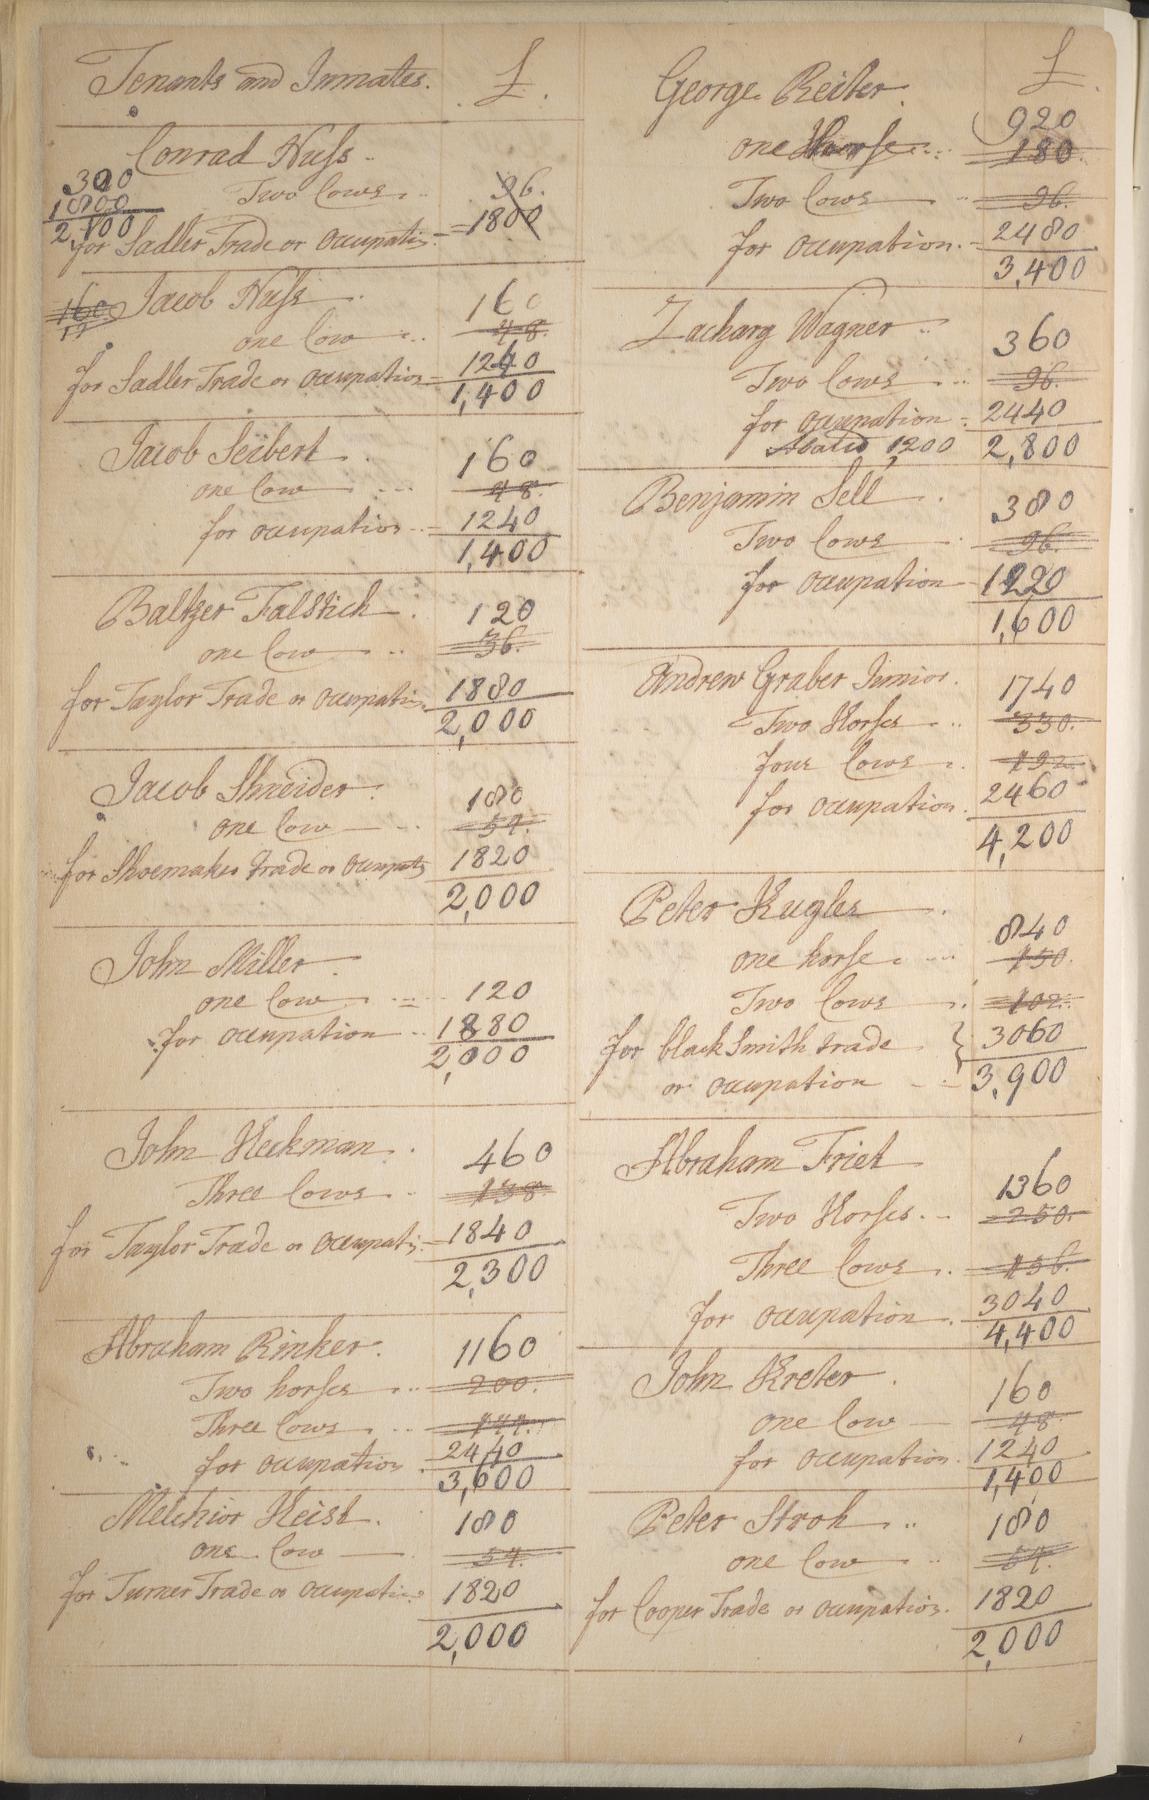 Tenants and Inmates. £.
Conrad Nuss
300
1800
2,100
Two Cows 96.
for Sadler Trade or Occupatio. 1800
Jacob Nuss 160
160
one Cow 48.
for Sadler Trade or occupation 1240
1,400
Jacob Seibert 160
one Cow 48.
for occupation 1240
1,400
Baltzer Falstich 120
one Cow 36.
for Taylor Trade or occupatio 1880
2,000
Jacob Shneider 180
one Cow 54.
for Shoemaker trade or occupat 1820
2,000
John Miller
one Cow 120
for occupation 1880
2,000
John Heckman 460
Three Cows 138.
for Taylor Trade or occupati. 1840
2,300
Abraham Rinker 1160
Two horses 200.
Three Cows 144.
for occupation 2440
3,600
Melchior Heist 180
one Cow 54.
for Turner Trade or occupatio 1820
2,000
£.
George Reiter 920
one Horse 180.
Two Cows 96.
for occupation 2480
3,400
Zacharg Wagner 360
Two Cows 96.
for occupation 2440
Abatd 1200 2,800
Benjamin Sell 380
Two Cows 96.
for occupation 1220
1,600
Andrew Graber Junior 1740
Two Horses 330.
four Cows 192.
for occupation 2460
4,200
Peter Kugler 840
one horse 150.
Two Cows 102.
for blackSmith trade } 3060
or occupation 3,900
Abraham Friet 1360
Two Horses 250.
Three Cows 156.
for occupation 3040
4,400
John Kreter 160
one Cow 48.
for occupation 1240
1,400
Peter Stroh 180
one Cow 54.
for Cooper Trade or occupation 1820
2,000